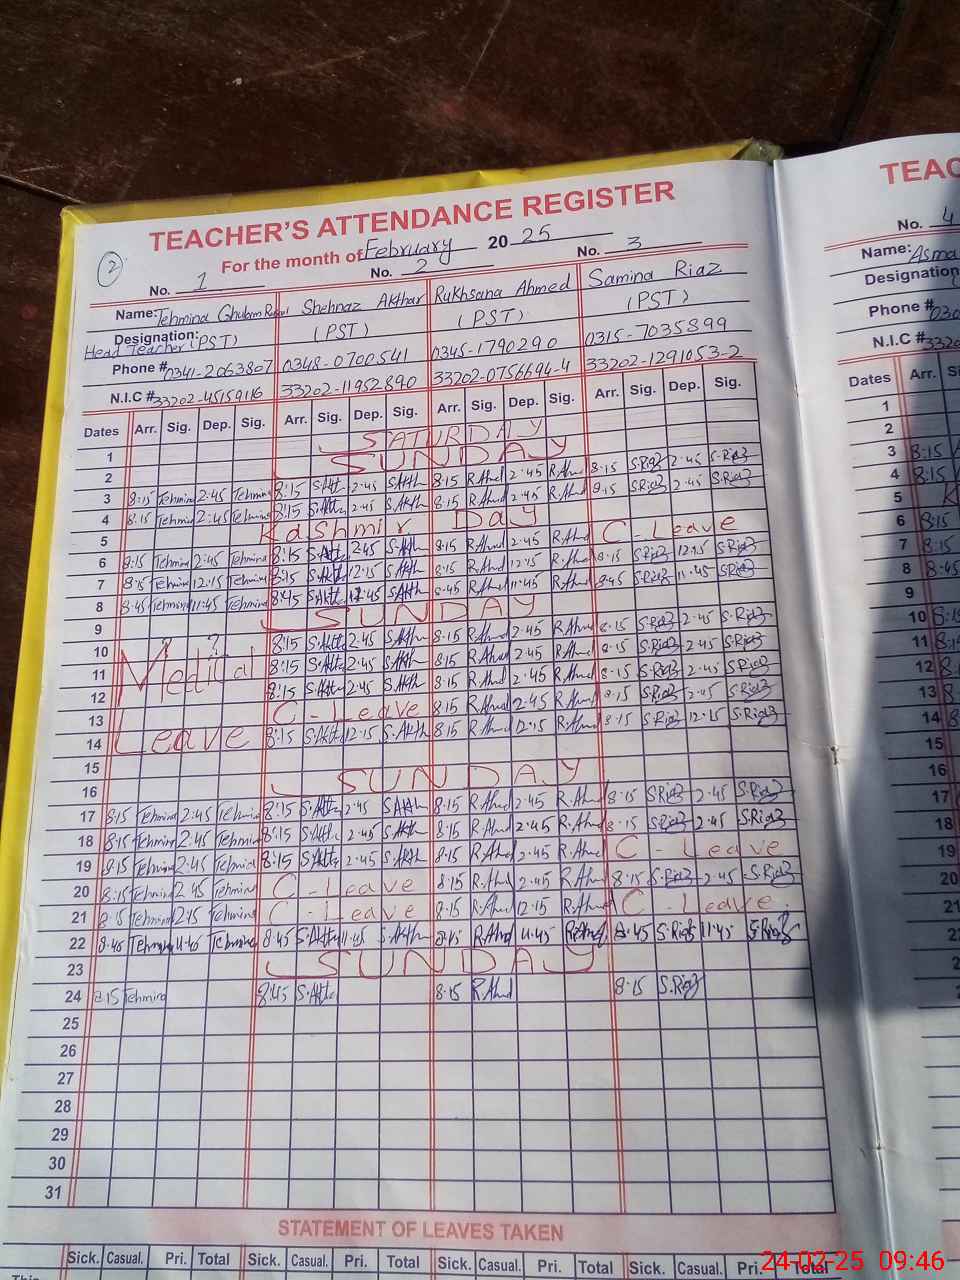 TEACHER'S ATTENDANCE REGISTER
2 For the month of February 2025
No. 1 No. 2 No. 3
Name: Tehmina Ghulam Shehnaz Akthar Rukhsana Ahmed Samina Riaz
Designation: Head Teacher (PST) (PST) (PST) (PST)
Phone # 0341-2063807 0348-0700541 0345-1790290 0315-7035899
N.I.C # 33202-45159116 33202-11952890 33202-0756694-4 33202-1291053-2
Dates Arr. Sig. Dep. Sig. Arr. Sig. Dep. Sig. Arr. Sig. Dep. Sig. Arr. Sig. Dep. Sig.
1 SATURDAY
2 SUNDAY
3 8:15 Tehmina 2:45 Tehmina 8:15 S.Akth 2:45 S.Akth 8:15 R.Ahmd 2:45 R.Ahmd 8:15 S.Riaz 2:45 S.Riaz
4 8:15 Tehmina 2:45 Tehmina 8:15 S.Akth 2:45 S.Akth 8:15 R.Ahmd 2:45 R.Ahmd 8:15 S.Riaz 2:45 S.Riaz
5 Kashmir Day
6 8:15 Tehmina 2:45 Tehmina 8:15 S.Akth 2:45 S.Akth 8:15 R.Ahmd 2:45 R.Ahmd C-Leave
7 8:15 Tehmina 12:15 Tehmina 8:15 S.Akth 12:15 S.Akth 8:15 R.Ahmd 12:15 R.Ahmd 8:15 S.Riaz 12:15 S.Riaz
8 8:45 Tehmina 11:45 Tehmina 8:45 S.Akth 11:45 S.Akth 8:45 R.Ahmd 11:45 R.Ahmd 8:45 S.Riaz 11:45 S.Riaz
9 SUNDAY
10 ? ? 8:15 S.Akth 2:45 S.Akth 8:15 R.Ahmd 2:45 R.Ahmd 8:15 S.Riaz 2:45 S.Riaz
11 Medical 8:15 S.Akth 2:45 S.Akth 8:15 R.Ahmd 2:45 R.Ahmd 8:15 S.Riaz 2:45 S.Riaz
12 8:15 S.Akth 2:45 S.Akth 8:15 R.Ahmd 2:45 R.Ahmd 8:15 S.Riaz 2:45 S.Riaz
13 C-Leave 8:15 R.Ahmd 2:45 R.Ahmd 8:15 S.Riaz 2:45 S.Riaz
14 Leave 8:15 S.Akth 12:15 S.Akth 8:15 R.Ahmd 12:15 R.Ahmd 8:15 S.Riaz 12:15 S.Riaz
15
16 SUNDAY
17 8:15 Tehmina 2:45 Tehmina 8:15 S.Akth 2:45 S.Akth 8:15 R.Ahmd 2:45 R.Ahmd 8:15 S.Riaz 2:45 S.Riaz
18 8:15 Tehmina 2:45 Tehmina 8:15 S.Akth 2:45 S.Akth 8:15 R.Ahmd 2:45 R.Ahmd 8:15 S.Riaz 2:45 S.Riaz
19 8:15 Tehmina 2:45 Tehmina 8:15 S.Akth 2:45 S.Akth 8:15 R.Ahmd 2:45 R.Ahmd C-Leave
20 8:15 Tehmina 2:45 Tehmina C-Leave 8:15 R.Ahmd 2:45 R.Ahmd 8:15 S.Riaz 2:45 S.Riaz
21 8:15 Tehmina 12:15 Tehmina C-Leave 8:15 R.Ahmd 12:15 R.Ahmd C-Leave
22 8:45 Tehmina 11:45 Tehmina 8:45 S.Akth 11:45 S.Akth 8:45 R.Ahmd 11:45 R.Ahmd 8:45 S.Riaz 11:45 S.Riaz
23 SUNDAY
24 8:15 Tehmina 8:45 S.Akth 8:15 R.Ahmd 8:15 S.Riaz
25
26
27
28
29
30
31
STATEMENT OF LEAVES TAKEN
Sick. Casual. Pri. Total Sick. Casual. Pri. Total Sick. Casual. Pri. Total Sick. Casual. Pri. Total
This
No. 4
Name: Asma
Designation
Phone #
N.I.C # 3320
Dates Arr.
1
2
3 8:15
4 8:15
5
6 8:15
7 8:15
8 8:45
9
10 8:15
11
12
13
14
15
16
17
18
19
20
21
24-02-25 09:46